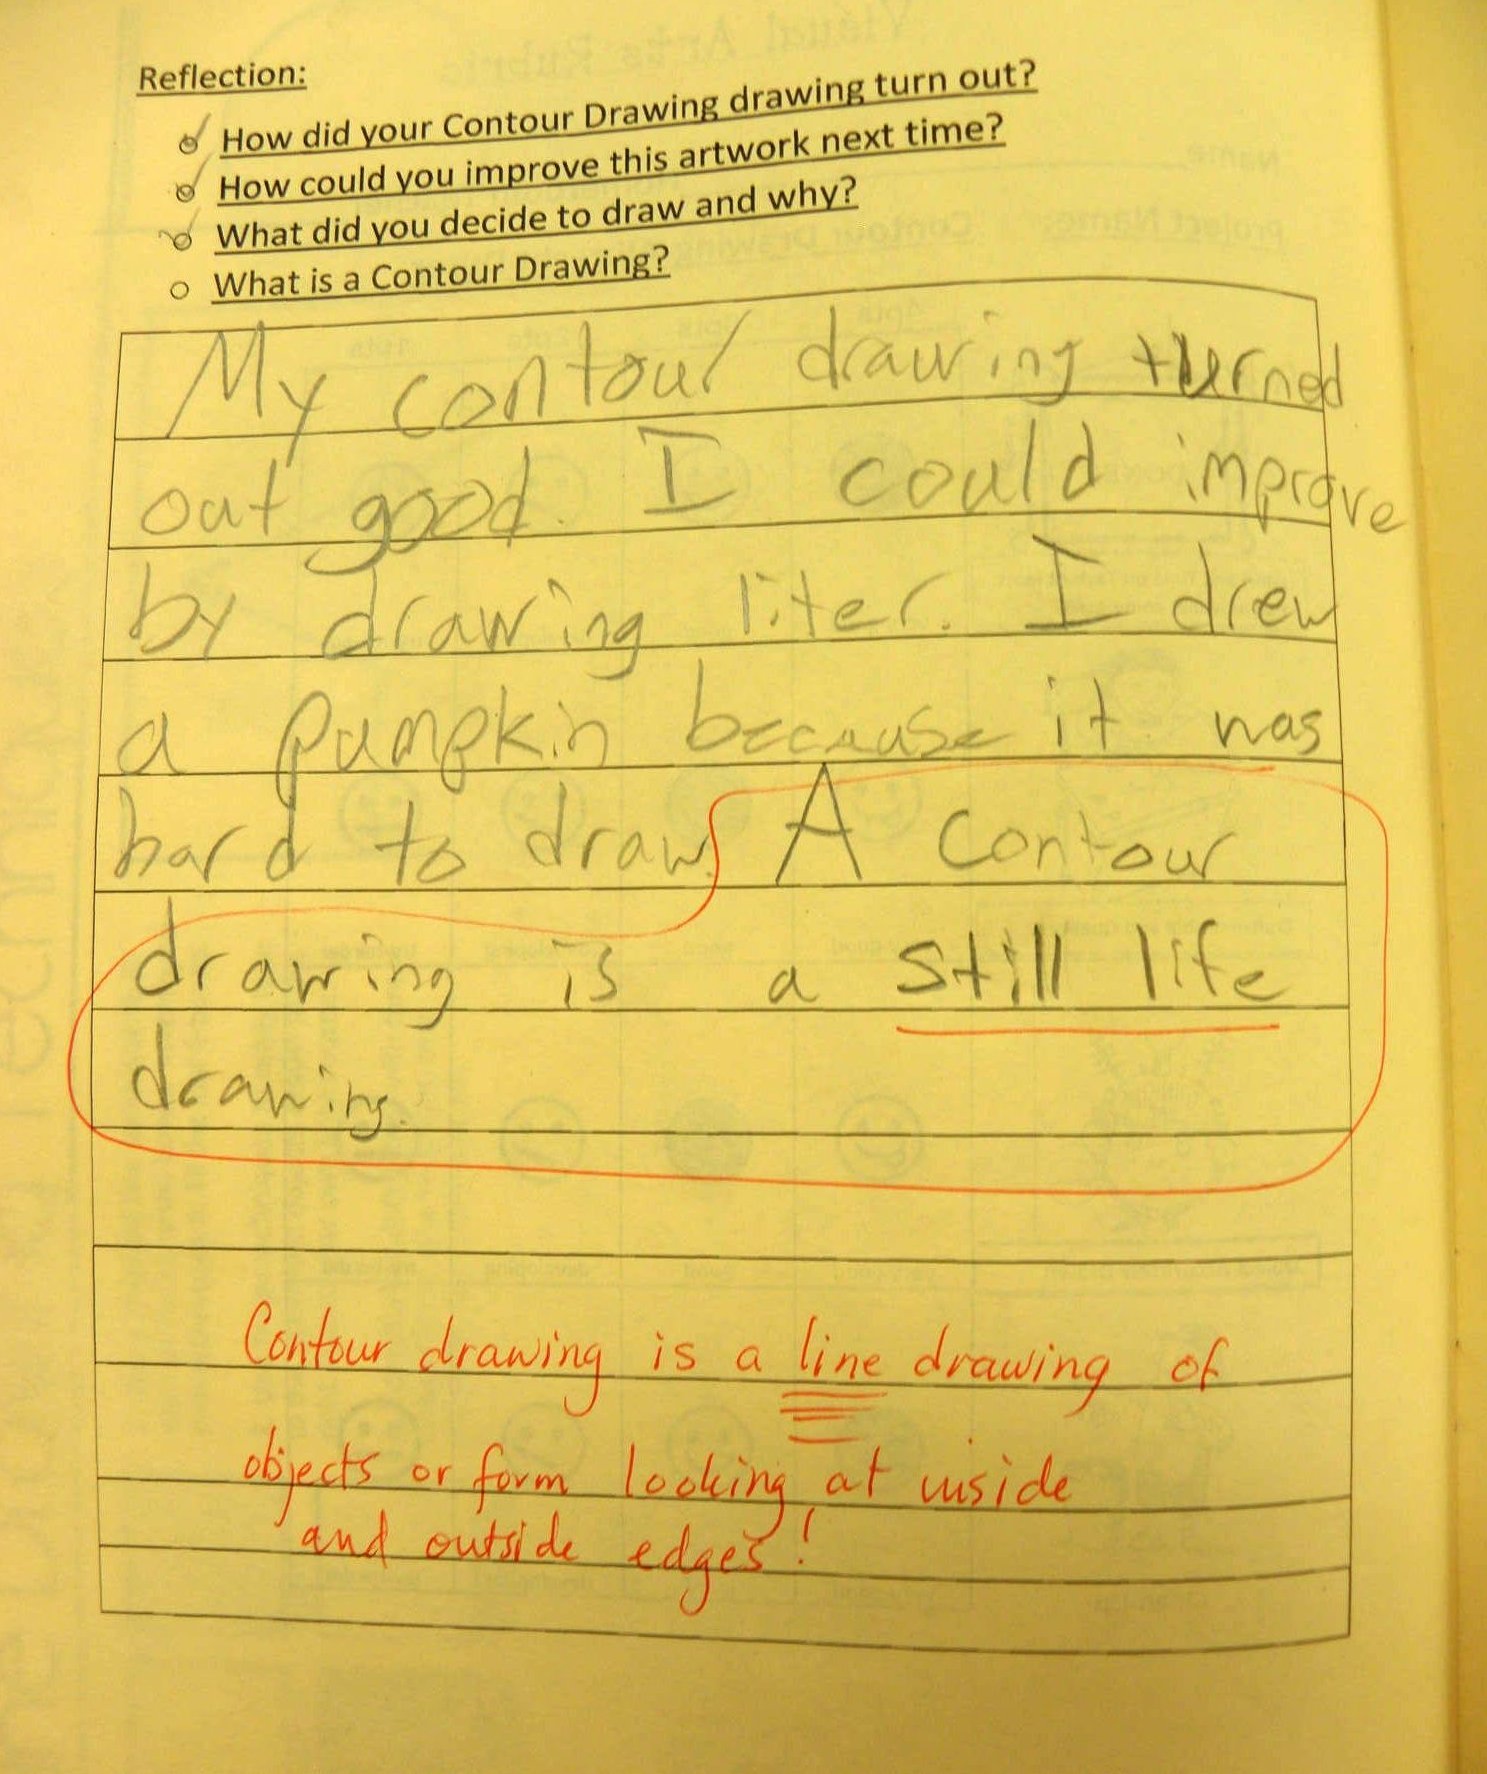 Reflection:
How did your Contour Drawing drawing turn out?
How could you improve this artwork next time?
What did you decide to draw and why?
What is a Contour Drawing?
My contour drawing turned
out good. I could improve
by drawing liter. I drew
a pumpkin because it was
hard to draw. A contour
drawing is a still life
drawing.
Contour drawing is a line drawing of
objects or form looking at inside
and outside edges!